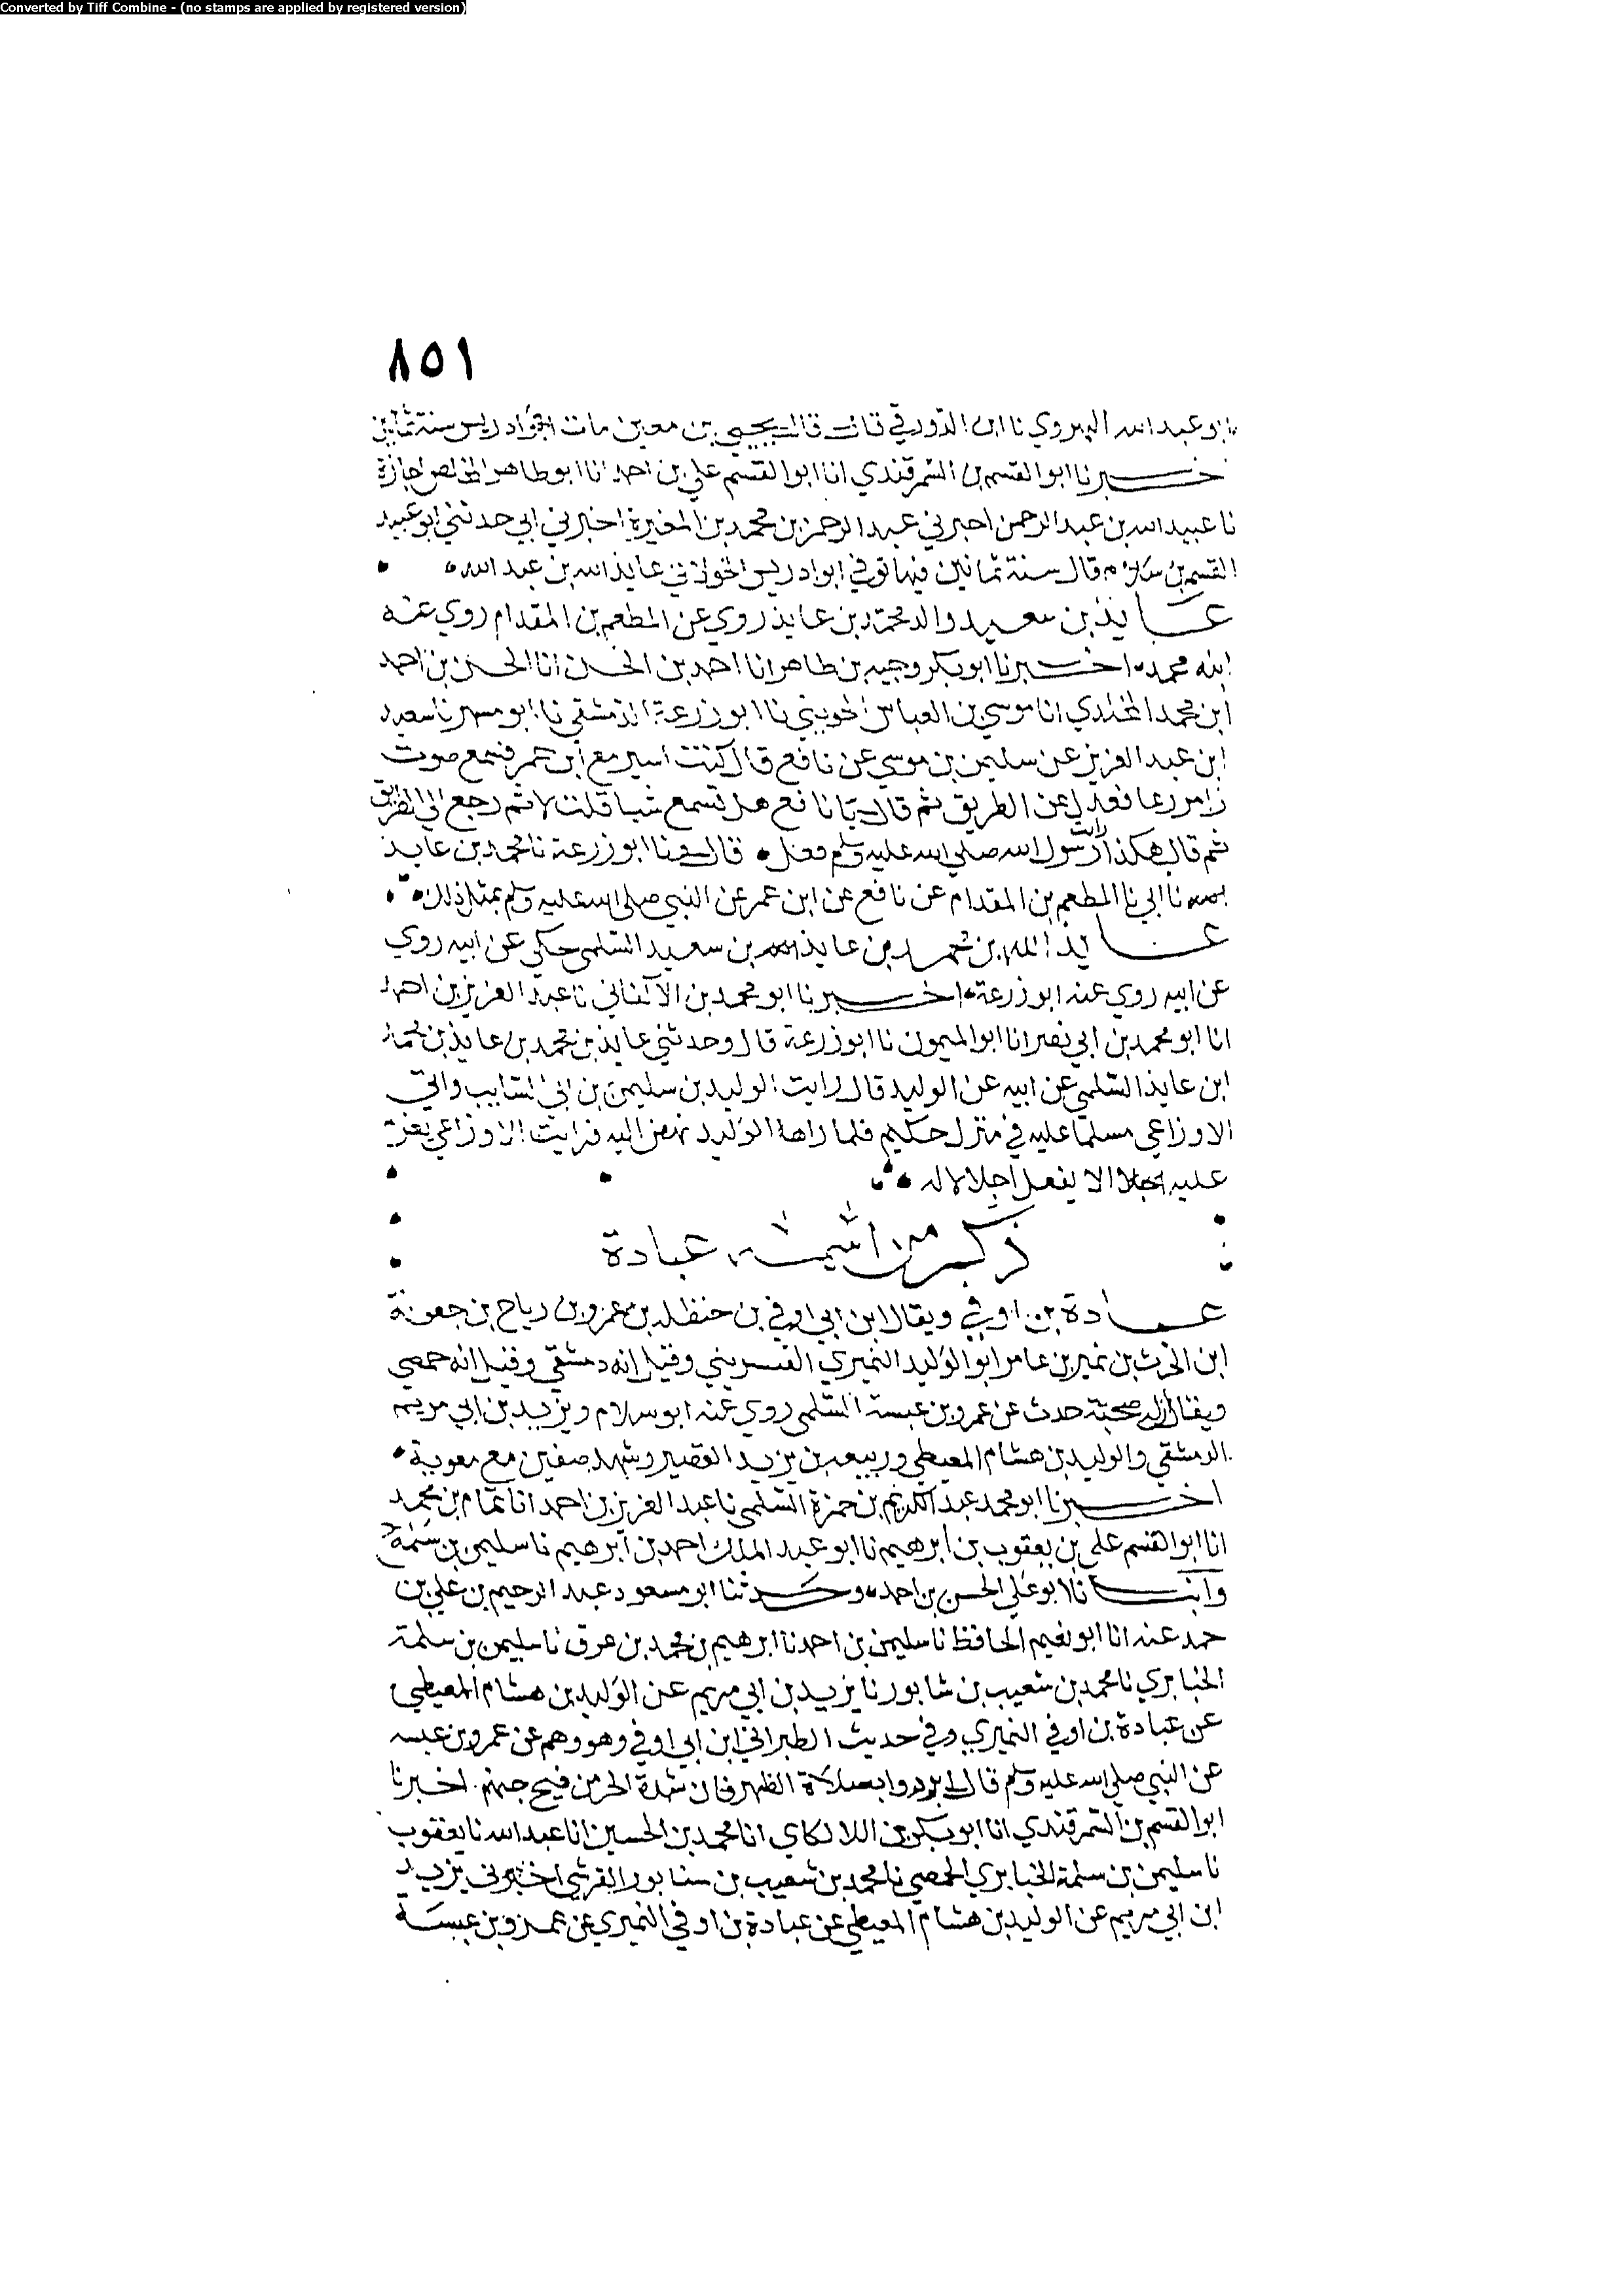 Converted by Tiff Combine - (no stamps are applied by registered version)
٨٥١
ابو عبد الله الهروي نا ابن الدورقي قال قال يحيى بن معين مات ابو ادريس سنة ثمانين
اخبرنا ابو القسم بن السمرقندي انا ابو القسم علي بن احمد انا ابو طاهر المخلص اجازة
نا عبيد الله بن عبد الرحمن اخبرني عبد الرحمن بن محمد بن المغيرة اخبرني ابي حدثني ابو عبيد
القسم بن سلام قال سنة ثمانين فيها توفي ابو ادريس الخولاني عايذ الله بن عبد الله
عايذ بن سعيد والد محمد بن عايذ روي عن المطعم بن المقدام روي عنه
ابنه محمد اخبرنا ابو بكر وجيه بن طاهر انا احمد بن الحسن انا الحسن بن احمد
ابن محمد المخلدي انا موسي بن العباس الجويني نا ابو زرعة الدمشقي نا ابو مسهر نا سعيد
ابن عبد العزيز عن سليمن بن موسي عن نافع قال كنت اسير مع ابن عمر فسمع صوت
زامر رعا فعدل عن الطريق ثم قال يا نافع هل تسمع شيا قلت لا ثم رجع الي الطريق
ثم قال هكذا رايت رسول الله صلي الله عليه وسلم فعل قال ونا ابو زرعة نا محمد بن عايذ
نا ابي نا المطعم بن المقدام عن نافع عن ابن عمر عن النبي صلي الله عليه وسلم بمثل ذلك
عايذ الله بن محمد بن عايذ بن سعيد السلمي حكي عن ابيه روي
عن ابيه روي عنه ابو زرعة اخبرنا ابو محمد بن الاكفاني نا عبد العزيز بن احمد
انا ابو محمد بن ابي نصر انا ابو الميمون نا ابو زرعة قال وحدثني عايذ بن محمد بن عايذ بن محمد
ابن عايذ السلمي عن ابيه عن الوليد قال رايت الوليد بن سليمن بن ابي السايب واتي
الاوزاعي مسلما عليه في منزل حكيم فلما راها الوليد نهض اليه فرايت الاوزاعي يعزم
عليه الا يفعل اجلالا له
ذكر من اسمه عبادة
عبادة بن اوفي ويقال ابن ابي اوفي بن حنظلة بن عمرو بن رياح بن جعونة
ابن الحرث بن نمير بن عامر ابو الوليد النميري القنسريني وقيل انه دمشقي وقيل انه حمصي
ويقال ان له صحبة حدث عن عمرو بن عبسة السلمي روي عنه ابو سلام ويزيد بن ابي مريم
الدمشقي والوليد بن هشام المعيطي وربيعة بن يزيد القصير وشهد صفين مع معوية
اخبرنا ابو محمد عبد الكريم بن حمزة السلمي نا عبد العزيز بن احمد انا تمام بن محمد
انا ابو القسم علي بن يعقوب بن ابرهيم نا ابو عبد الملك احمد بن ابرهيم نا سليمن بن سلمة ح
وانبانا ابو علي الحسن بن احمد وحدثنا ابو مسعود عبد الرحيم بن علي بن
حمد عنه انا ابو نعيم الحافظ نا سليمن بن احمد نا ابرهيم بن محمد بن عرق نا سليمن بن سلمة
الخبايري نا محمد بن شعيب بن شابور نا يزيد بن ابي مريم عن الوليد بن هشام المعيطي
عن عبادة بن اوفي النميري وفي حديث الطبراني ابن ابي اوفي وهو وهم عن عمرو بن عبسة
عن النبي صلي الله عليه وسلم قال ابردوا بصلاة الظهر فان شدة الحر من فيح جهنم اخبرنا
ابو القسم بن السمرقندي انا ابو بكر بن اللالكاي انا محمد بن الحسين انا عبد الله نا يعقوب
نا سليمن بن سلمة الخبايري الحمصي نا محمد بن شعيب بن سنابور القرشي اخبرني يزيد
ابن ابي مريم عن الوليد بن هشام المعيطي عن عبادة بن اوفي النميري عن عمرو بن عبسة